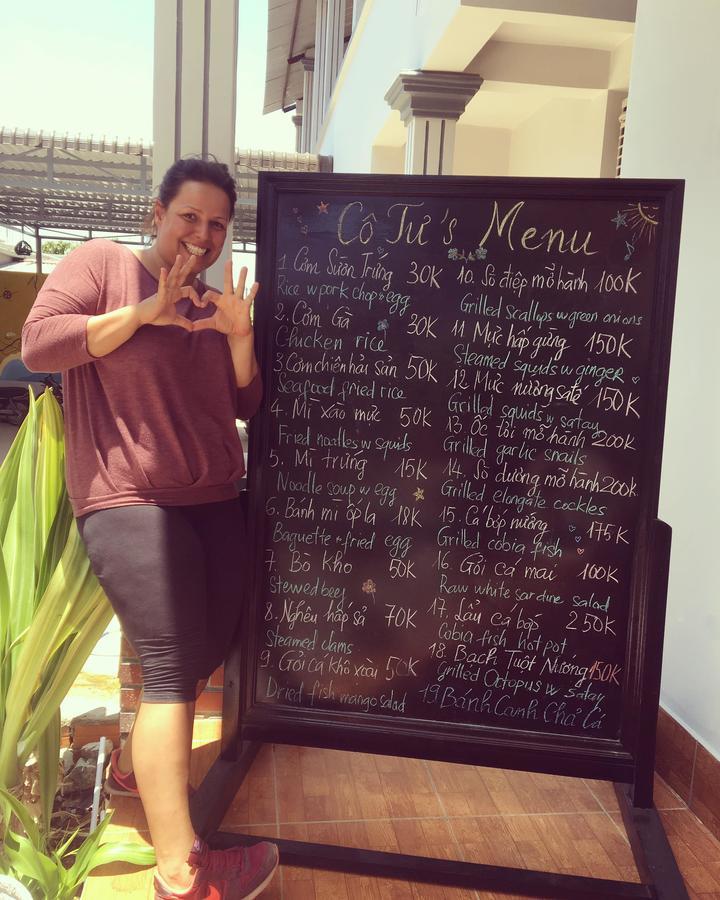 Cô Tư's Menu
1. Cơm Sườn Trứng 30K
Rice w pork chop & egg
2. Cơm Gà 30K
Chicken rice
3. Cơm chiên hải sản 50K
Seafood fried rice
4. Mì xào mực 50K
Fried noodles w squids
5. Mì trứng 15K
Noodle soup w egg
6. Bánh mì ốp la 18K
Baguette + fried egg
7. Bò kho 50K
Stewed beef
8. Nghêu hấp sả 70K
Steamed clams
9. Gỏi cá khô xoài 50K
Dried fish mango salad
10. Sò điệp mỡ hành 100K
Grilled scallops w green onions
11 Mực hấp gừng 150K
Steamed squids w ginger
12 Mực nướng saté 150K
Grilled squids w satay
13. Ốc tỏi mỡ hành 200K
Grilled garlic snails
14. Sò dương mỡ hành 200k
Grilled elongate cockles
15. Cá bóp nướng 175K
Grilled cobia fish
16. Gỏi cá mai 100K
Raw white sardine salad
17. Lẩu cá bóp 250K
Cobia fish hot pot
18. Bạch Tuột Nướng 150K
Grilled Octopus w satay
19 Bánh Canh Chả Cá